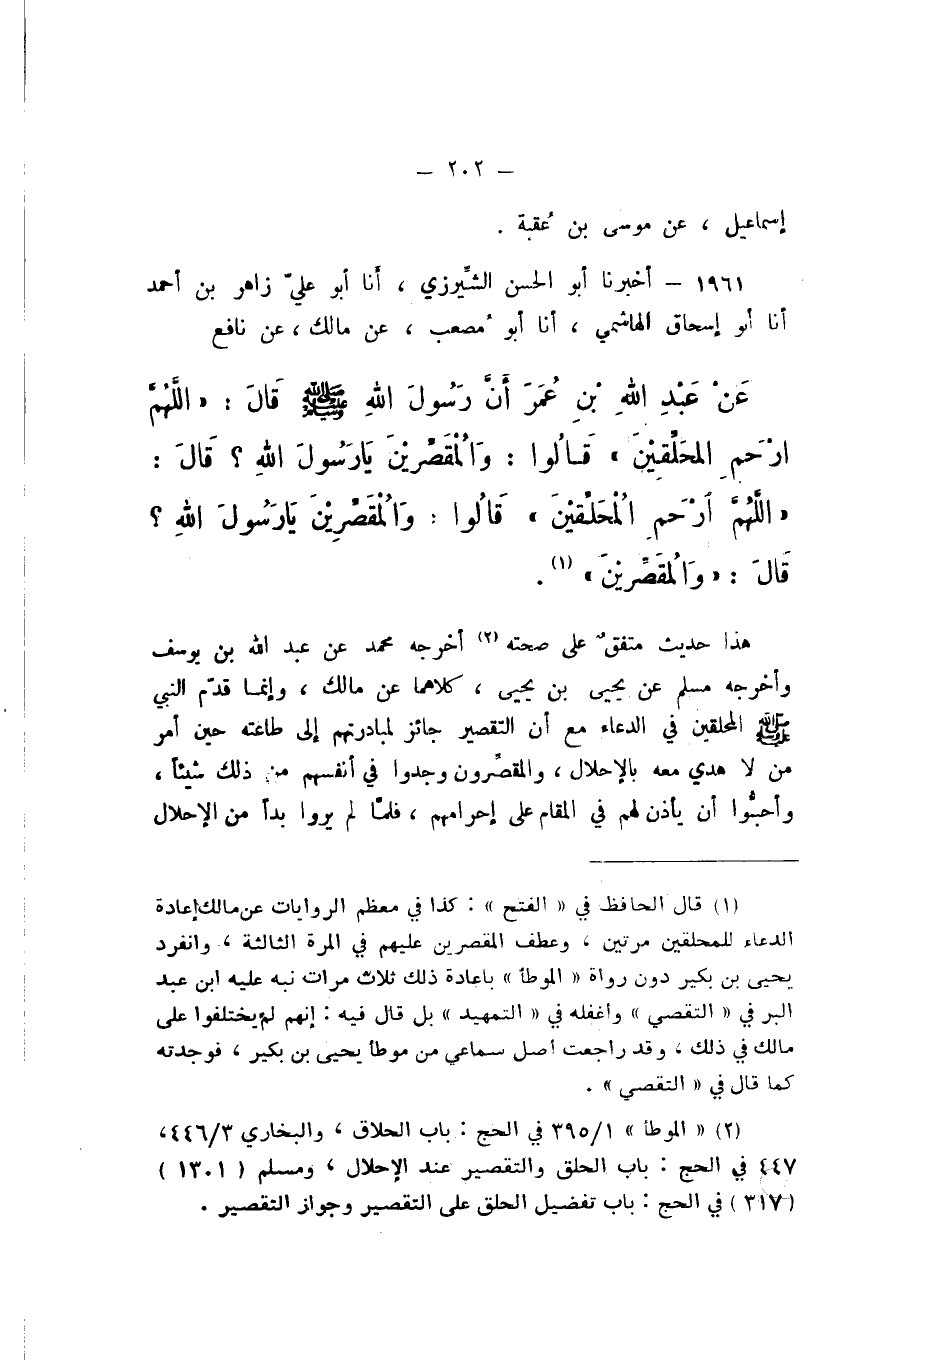 – ٢٠٢ –
إسماعيل ، عن موسى بن عُقبة .
١٩٦١ – أخبرنا أبو الحسن الشِّيرزي ، أنا أبو عليّ زاهر بن أحمد
أنا أبو إسحاق الهاشمي ، أنا أبو مُصعب ، عن مالك ، عن نافع
عَنْ عَبْدِ اللهِ بْنِ عُمَرَ أَنَّ رَسُولَ اللهِ ﷺ قَالَ : « اللَّهُمَّ
ارْحَمِ المُحَلِّقِيْنَ » قَالُوا : وَالْمُقَصِّرِيْنَ يَارَسُولَ اللهِ ؟ قَالَ :
« اللَّهُمَّ ارْحَمِ الْمُحَلِّقِيْنَ » قَالُوا : وَالْمُقَصِّرِيْنَ يَارَسُولَ اللهِ ؟
قَالَ : « وَالْمُقَصِّرِيْنَ » (١) .
هذا حديث متفقٌ على صحته (٢) أخرجه محمد عن عبد الله بن يوسف
وأخرجه مسلم عن يحيى بن يحيى ، كلاهما عن مالك ، وإنما قدّم النبي
ﷺ المحلقين في الدعاء مع أن التقصير جائز لمبادرتهم إلى طاعته حين أمر
من لا هدي معه بالإحلال ، والمقصِّرون وجدوا في أنفسهم من ذلك شيئاً ،
وأحبُّوا أن يأذن لهم في المقام على إحرامهم ، فلمّا لم يروا بدأ من الإحلال
(١) قال الحافظ في « الفتح » : كذا في معظم الروايات عن مالك إعادة
الدعاء للمحلقين مرتين ، وعطف المقصرين عليهم في المرة الثالثة ، وانفرد
يحيى بن بكير دون رواة « الموطأ » باعادة ذلك ثلاث مرات نبه عليه ابن عبد
البر في « التقصي » وأغفله في « التمهيد » بل قال فيه : إنهم لم يختلفوا على
مالك في ذلك ، وقد راجعت أصل سماعي من موطأ يحيى بن بكير ، فوجدته
كما قال في « التقصي » .
(٢) « الموطأ » ٣٩٥/١ في الحج : باب الحلاق ، والبخاري ٤٤٦/٣،
٤٤٧ في الحج : باب الحلق والتقصير عند الإحلال ، ومسلم ( ١٣٠١ )
(٣١٧ ) في الحج : باب تفضيل الحلق على التقصير وجواز التقصير .